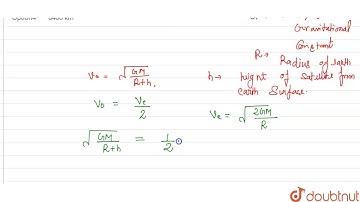 Gravitational
Constant
R → Radius of earth
h → height of Satellite from
earth Surface.
v₀ = √GM/R+h.
V₀ = Ve/2
Ve = √2GM/R
√GM/R+h = 1/2
doubtnut